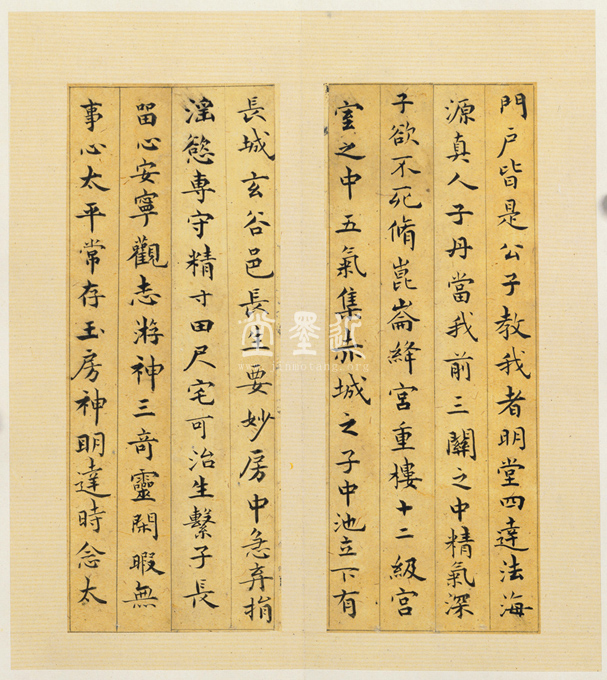 門戶皆是公子教我者明堂四達法海
源真人子丹當我前三關之中精氣深
子欲不死脩崑崙絳宮重樓十二級宮
室之中五氣集赤城之子中池立下有
長城玄谷邑長生要妙房中急弃捐
淫慾專守精寸田尺宅可治生繫子長
留心安寧觀志游神三奇靈閑暇無
事心太平常存玉房神明達時念太
近墨堂
www.jinmotang.org